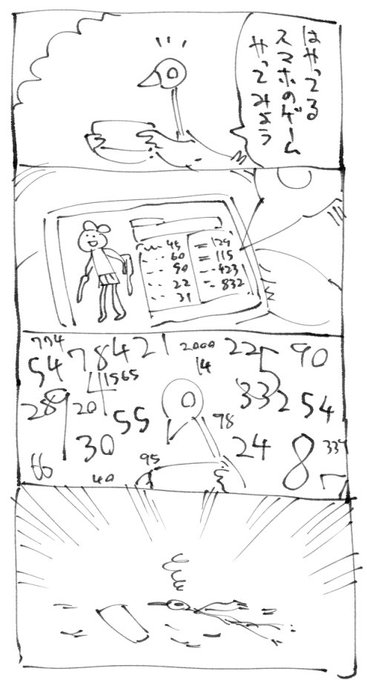 はやってる
スマホのゲーム
やってみよう
45 = 129
60 = 115
90 - 423
22 - 832
31
774
54
78421
2000
14
225
90
1565
289
20
4
55
98
33254
30
24
8
337
66
40
95